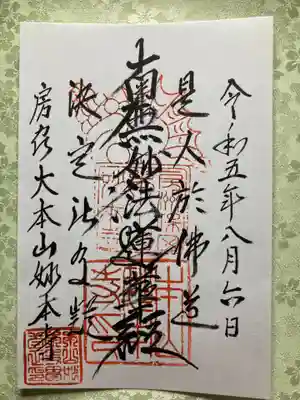 令和五年八月六日
是人於佛道
南無妙法蓮華経
決定無有疑
房州大本山妙本寺